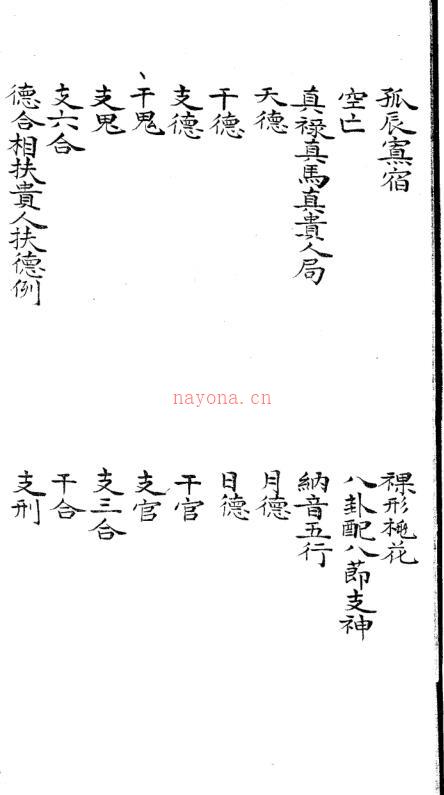 孤辰寡宿
裸形桃花
空亡
八卦配八節支神
真禄真馬真貴人局
納音五行
天德
月德
干德
日德
支德
干官
干鬼
支官
支鬼
支三合
支六合
干合
德合相扶貴人扶德例
支刑
nayona.cn